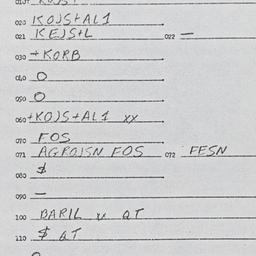 020 KOJS+AL1
021 KEJS+L 022 —
030 +KORB
040 O
050 O
060 +KOJS+AL1 xx
070 FOS
071 AGROJSN FOS 072 FESN
080 $
090 —
100 BARIL v QT
110 $ QT